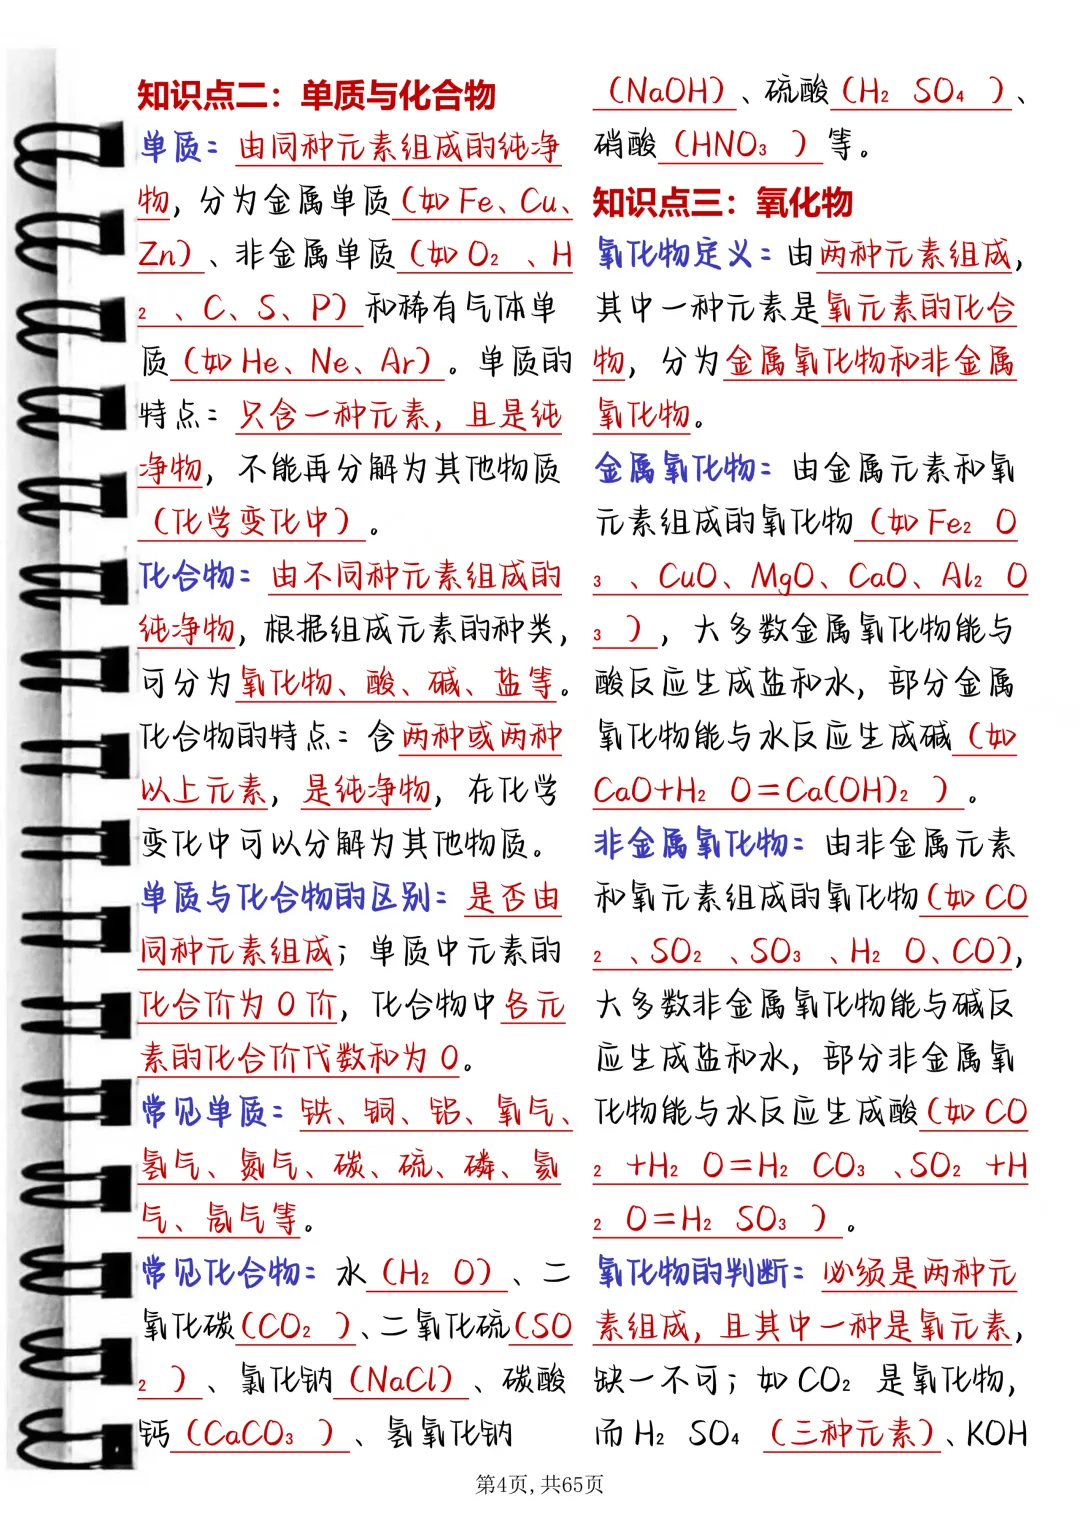 知识点二：单质与化合物
单质：由同种元素组成的纯净
物，分为金属单质（如 Fe、Cu、
Zn）、非金属单质（如 O₂ 、H
₂ 、C、S、P）和稀有气体单
质（如 He、Ne、Ar）。单质的
特点：只含一种元素，且是纯
净物，不能再分解为其他物质
（化学变化中）。
化合物：由不同种元素组成的
纯净物，根据组成元素的种类，
可分为氧化物、酸、碱、盐等。
化合物的特点：含两种或两种
以上元素，是纯净物，在化学
变化中可以分解为其他物质。
单质与化合物的区别：是否由
同种元素组成；单质中元素的
化合价为 0 价，化合物中各元
素的化合价代数和为 0。
常见单质：铁、铜、铝、氧气、
氢气、氮气、碳、硫、磷、氦
气、氖气等。
常见化合物：水（H₂ O）、二
氧化碳（CO₂ ）、二氧化硫（SO
₂ ）、氯化钠（NaCl）、碳酸
钙（CaCO₃ ）、氢氧化钠
（NaOH）、硫酸（H₂ SO₄ ）、
硝酸（HNO₃ ）等。
知识点三：氧化物
氧化物定义：由两种元素组成，
其中一种元素是氧元素的化合
物，分为金属氧化物和非金属
氧化物。
金属氧化物：由金属元素和氧
元素组成的氧化物（如 Fe₂ O
₃ 、CuO、MgO、CaO、Al₂ O
₃ ），大多数金属氧化物能与
酸反应生成盐和水，部分金属
氧化物能与水反应生成碱（如
CaO+H₂ O=Ca(OH)₂ ）。
非金属氧化物：由非金属元素
和氧元素组成的氧化物（如 CO
₂ 、SO₂ 、SO₃ 、H₂ O、CO），
大多数非金属氧化物能与碱反
应生成盐和水，部分非金属氧
化物能与水反应生成酸（如 CO
₂ +H₂ O=H₂ CO₃ 、SO₂ +H
₂ O=H₂ SO₃ ）。
氧化物的判断：必须是两种元
素组成，且其中一种是氧元素，
缺一不可；如 CO₂ 是氧化物，
而 H₂ SO₄ （三种元素）、KOH
第4页，共65页